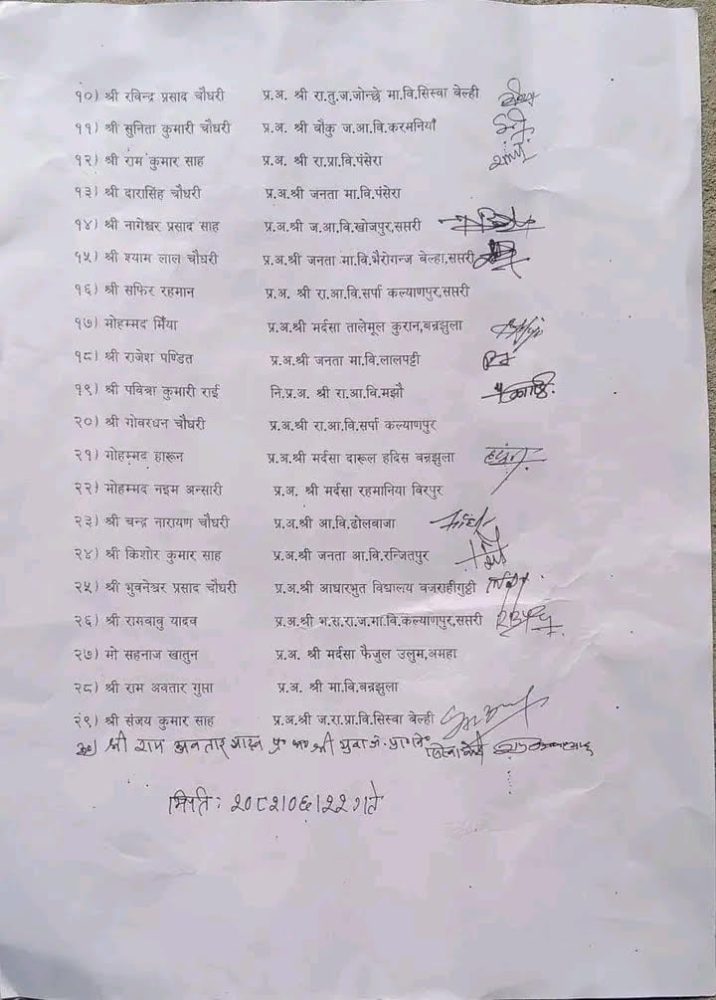 १०) श्री रविन्द्र प्रसाद चौधरी प्र.अ. श्री रा.तु.ज.जोन्छे मा.वि.सिस्वा बेल्ही
११) श्री सुनिता कुमारी चौधरी प्र.अ. श्री बौकु ज.आ.वि.करमनियाँ
१२) श्री राम कुमार साह प्र.अ. श्री रा.प्रा.वि.पंसेरा
१३) श्री दारासिंह चौधरी प्र.अ.श्री जनता मा.वि.पंसेरा
१४) श्री नागेश्वर प्रसाद साह प्र.अ.श्री ज.आ.वि.खोजपुर,सप्तरी
१५) श्री श्याम लाल चौधरी प्र.अ.श्री जनता मा.वि.भैरोगन्ज बेल्हा,सप्तरी
१६) श्री सफिर रहमान प्र.अ. श्री रा.आ.वि.सर्पा कल्याणपुर,सप्तरी
१७) मोहम्मद मिँया प्र.अ.श्री मर्दसा तालेमूल कुरान,बन्नझुला
१८) श्री राजेश पण्डित प्र.अ.श्री जनता मा.वि.लालपट्टी
१९) श्री पवित्रा कुमारी राई नि.प्र.अ. श्री रा.आ.वि.मझौ
२०) श्री गोवरधन चौधरी प्र.अ.श्री रा.आ.वि.सर्पा कल्याणपुर
२१) मोहम्मद हारून प्र.अ.श्री मर्दसा दारूल हदिस बन्नझुला
२२) मोहम्मद नइम अन्सारी प्र.अ. श्री मर्दसा रहमानिया विरपुर
२३) श्री चन्द्र नारायण चौधरी प्र.अ.श्री आ.वि.ढोलबाजा
२४) श्री किशोर कुमार साह प्र.अ.श्री जनता आ.वि.रन्जितपुर
२५) श्री भुवनेश्वर प्रसाद चौधरी प्र.अ.श्री आधारभुत विद्यालय बजराहीगुठ्ठी
२६) श्री रामबाबु यादव प्र.अ.श्री भ.स.रा.ज.मा.वि.कल्याणपुर,सप्तरी
२७) मो सहनाज खातुन प्र.अ. श्री मर्दसा फैजुल उलुम,अमहा
२८) श्री राम अवतार गुप्ता प्र.अ. श्री मा.वि.बन्नझुला
२९) श्री संजय कुमार साह प्र.अ.श्री ज.रा.प्रा.वि.सिस्वा बेल्ही
३०) श्री राम अवतार यादव प्र० अ० श्री
मिति: २०८२।०६।२२ गते